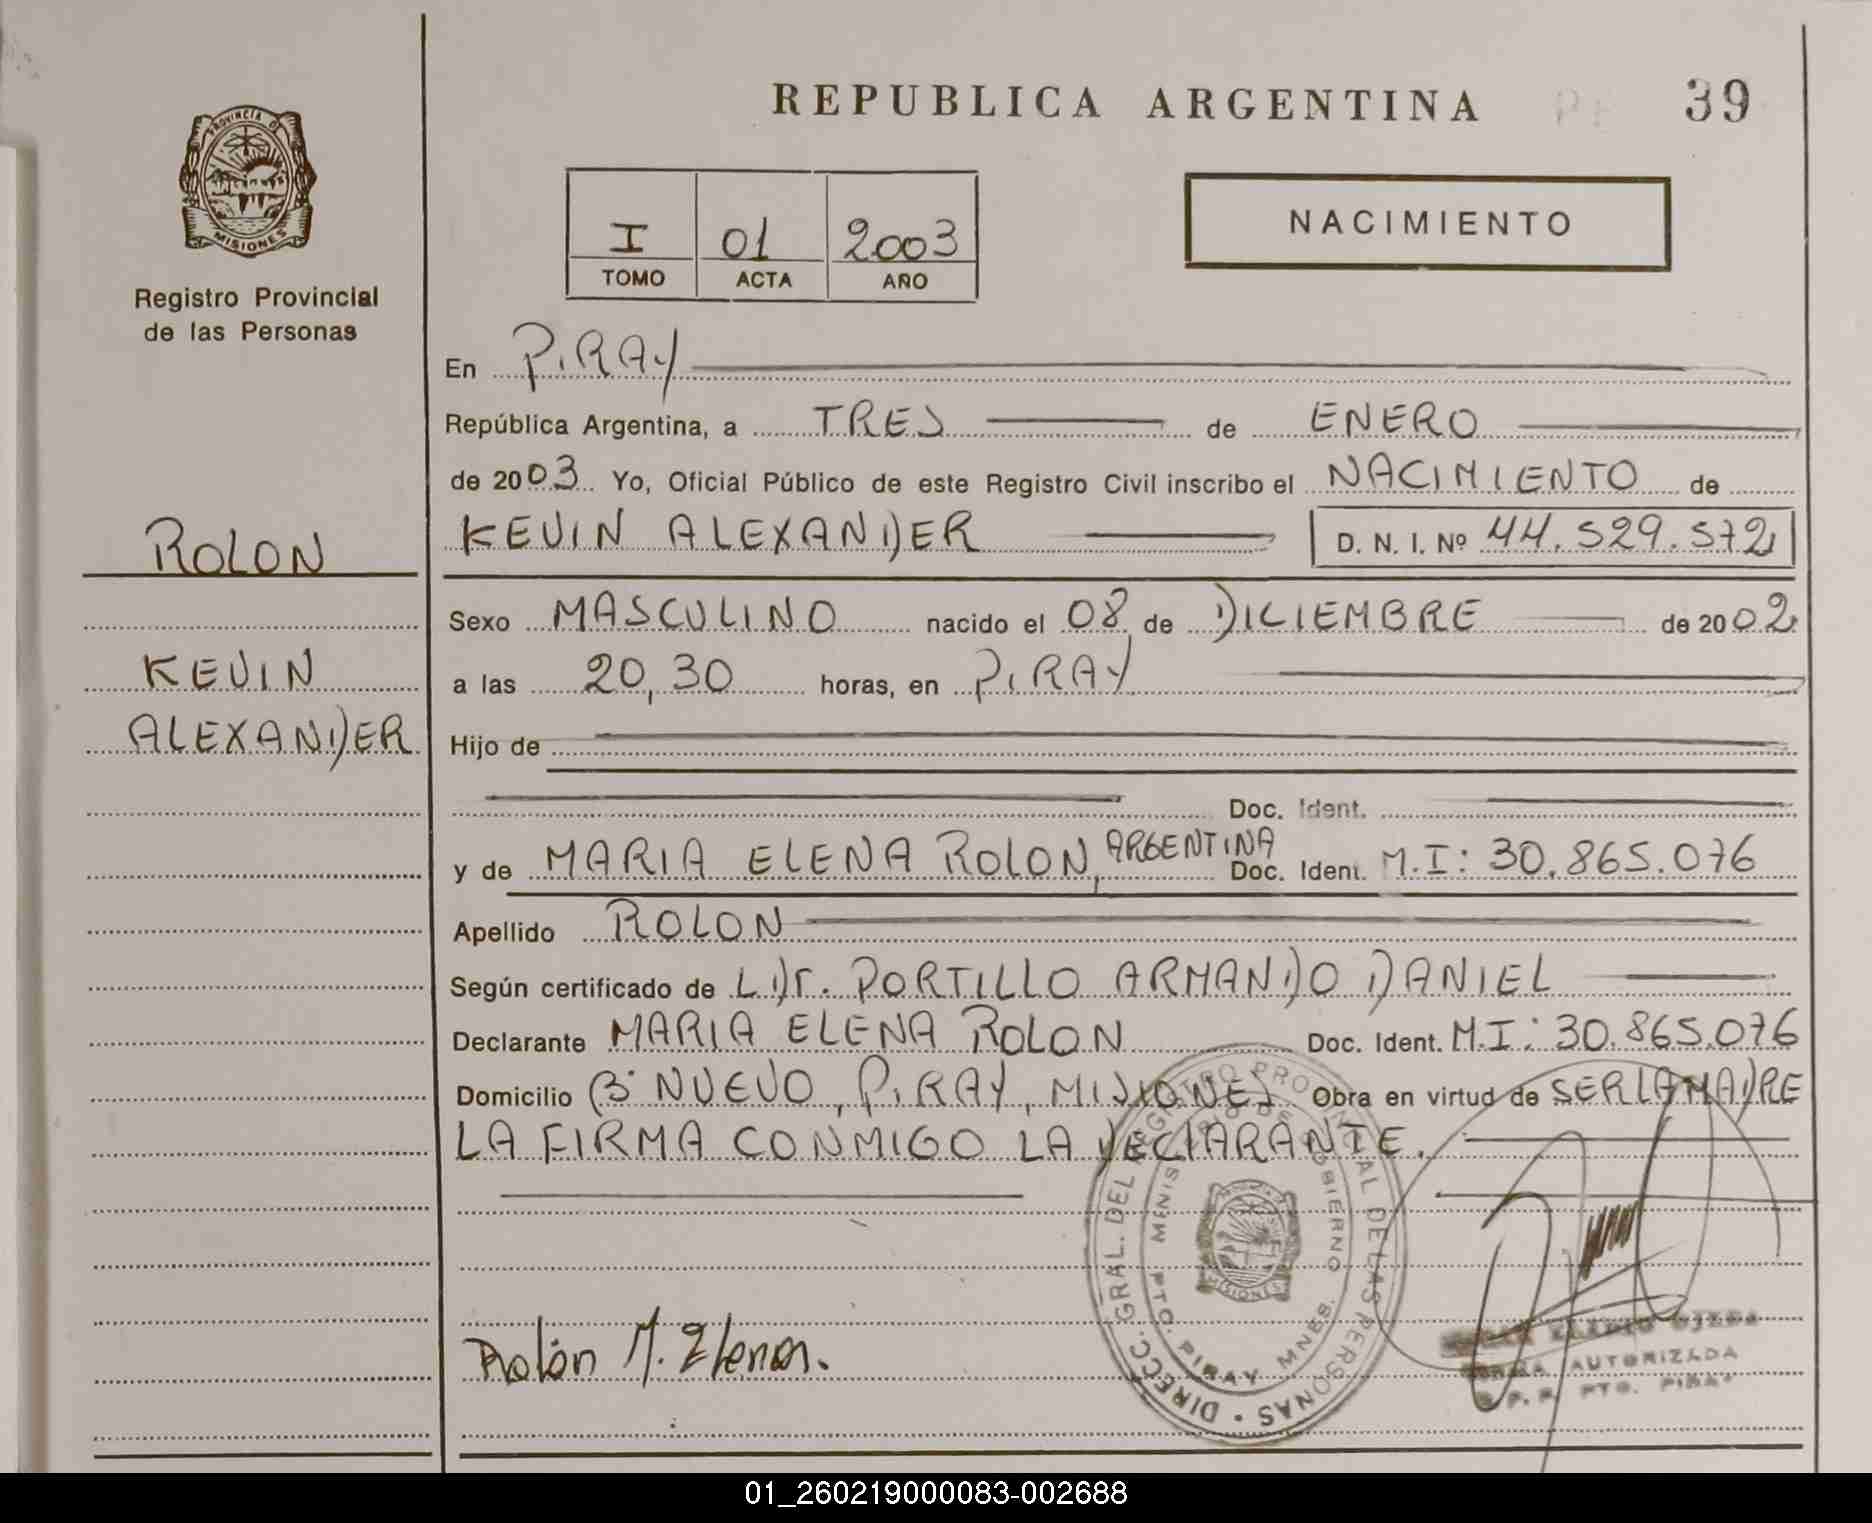 REPUBLICA ARGENTINA 39
PROVINCIA DE MISIONES
Registro Provincial
de las Personas
I 01 2003
TOMO ACTA AÑO
NACIMIENTO
ROLON
KEVIN
ALEXANDER
En PIRAY
República Argentina, a TRES de ENERO
de 2003 Yo, Oficial Público de este Registro Civil inscribo el NACIMIENTO de
KEVIN ALEXANDER D. N. I. Nº 44.529.572
Sexo MASCULINO nacido el 08 de DICIEMBRE de 2002
a las 20,30 horas, en PIRAY
Hijo de
Doc. Ident.
y de MARIA ELENA ROLON, ARGENTINA Doc. Ident. M.I: 30.865.076
Apellido ROLON
Según certificado de L Dr. PORTILLO ARMANDO DANIEL
Declarante MARIA ELENA ROLON Doc. Ident. M.I: 30.865.076
Domicilio Bº NUEVO, PIRAY, MISIONES Obra en virtud de SER LA MADRE
LA FIRMA CONMIGO LA DECLARANTE.
Rolón M. Elena.
DIRECC. GRAL. DEL REGISTRO PROVINCIAL DE LAS PERSONAS
MINISTERIO DE GOBIERNO
PTO. PIRAY MNES.
MISIONES
OJEDA
FIRMA AUTORIZADA
R. P. P. PTO. PIRAY
01_260219000083-002688